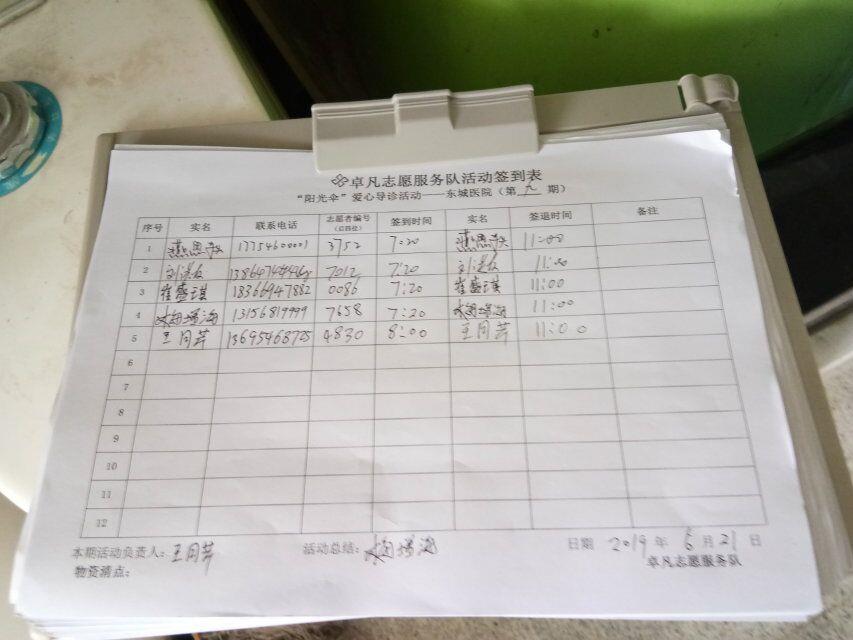 卓凡志愿服务队活动签到表
“阳光伞”爱心导诊活动——东城医院（第 九 期）
序号 实名 联系电话 志愿者编号（后四位） 签到时间 实名 签退时间 备注
1 17754600001 3752 7:20 11:00
2 7012 7:20 11:00
3 崔盛琪 18366947882 0086 7:20 崔盛琪 11:00
4 13156819999 7658 7:20 11:00
5 王同芹 13695468725 4830 8:00 王同芹 11:00
6
7
8
9
10
11
12
本期活动负责人：王同芹 活动总结： 日期 2019 年 6 月 21 日
物资清点： 卓凡志愿服务队